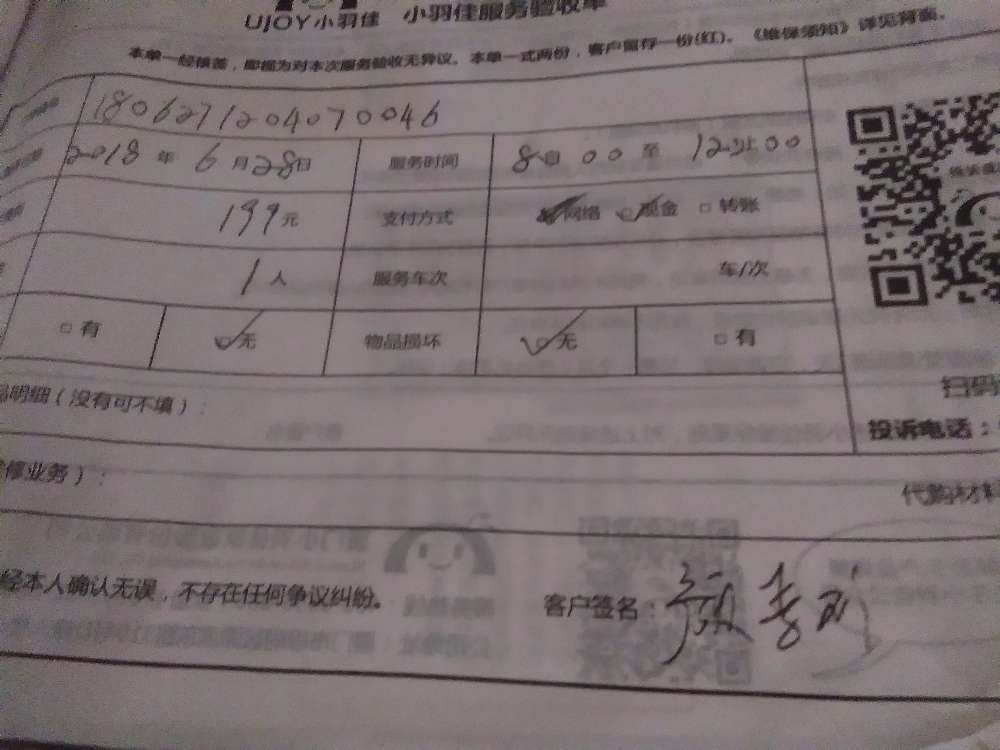 UJOY小羽佳 小羽佳服务验收单
本单一经核签，即视为对本次服务验收无异议。本单一式两份，客户留存一份(红)。《维保须知》详见背面。
180627120407 0046
2018 年 6 月 28 日 服务时间 8 00 至 12 00
199 元 支付方式 网络 □ 现金 □ 转账
1 人 服务车次 车/次
□ 有 □ 无 物品损坏 □ 无 □ 有
明细（没有可不填）：
扫码
投诉电话：
修业务）：
代购材料
经本人确认无误，不存在任何争议纠纷。
客户签名：